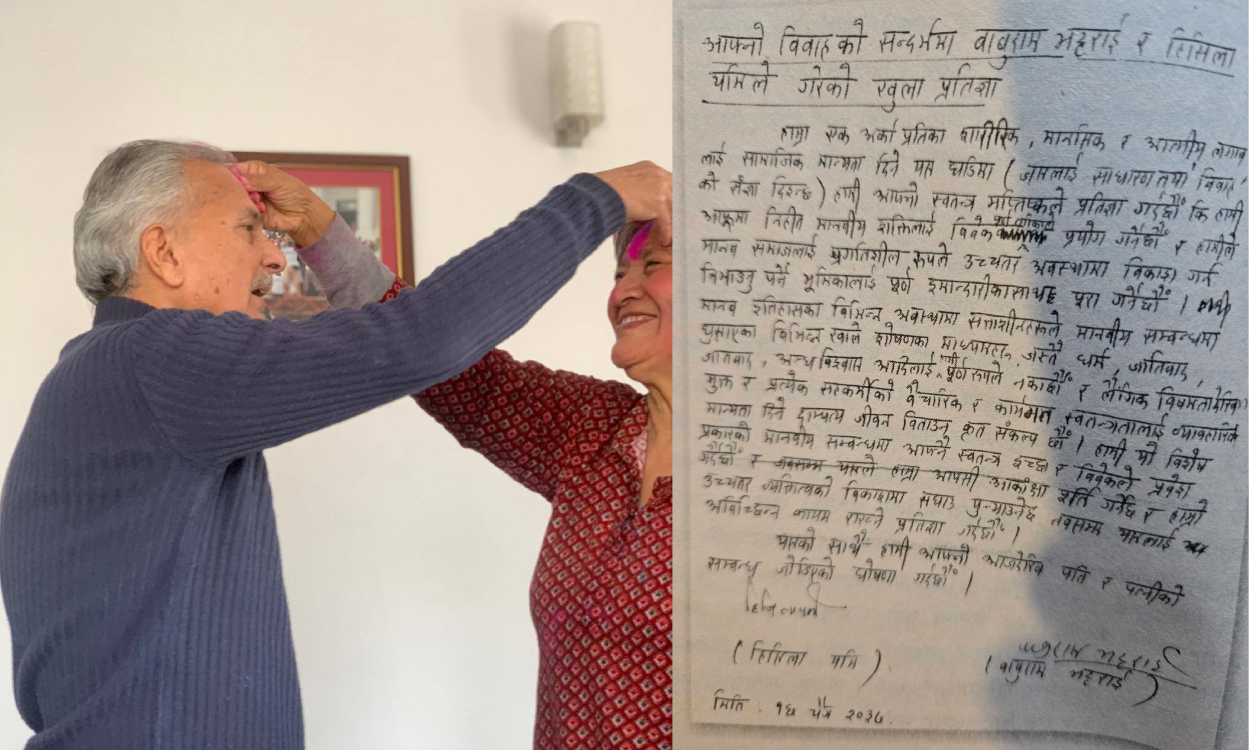 आफ्नो विवाहको सन्दर्भमा बाबुराम भट्टराई र हिसिला
यमिले गरेको खुला प्रतिज्ञा
हाम्रा एक अर्का प्रतिका शारीरिक, मानसिक र आत्मीय लगाव
लाई सामाजिक मान्यता दिने यस घडिमा (जसलाई साधारणतया 'विवाह'
को संज्ञा दिइन्छ) हामी आफ्नो स्वतन्त्र मस्तिष्कले प्रतिज्ञा गर्दछौं कि हामी
आफूमा निहीत मानवीय शक्तिलाई विवेक प्रयोग गर्नेछौं र हामीले
मानव समाजलाई प्रगतिशील रूपले उच्चतर अवस्थामा विकाश गर्न
निभाउनु पर्ने भूमिकालाई पूर्ण इमान्दारीकासाथ पूरा गर्नेछौं।
मानव इतिहासका विभिन्न अवस्थामा सत्ताशीनहरूले मानवीय सम्बन्धमा
घुसाएका विभिन्न खाले शोषणका माध्यमहरू, जस्तै धर्म, जातिवाद,
अन्धविश्वास आदिलाई पूर्ण रूपले नकार्छौं र लैंगिक विषमतादेखि
मुक्त र प्रत्येक सहकर्मीको वैचारिक र कार्यगत स्वतन्त्रतालाई व्यावहारिक
मान्यता दिने दाम्पत्य जीवन बिताउन कृत संकल्प छौं। हामी यो विशेष
प्रकारको मानवीय सम्बन्धमा आफ्नै स्वतन्त्र इच्छा र विवेकले प्रवेश
गर्दछौं र जबसम्म यसले हाम्रा आपसी आकांक्षा पूर्ति गर्नेछ र हाम्रो
उच्चतर व्यक्तित्वको विकाशमा सघाउ पुर्‍याउनेछ तबसम्म यसलाई
अविच्छिन्न कायम राख्ने प्रतिज्ञा गर्दछौं।
यसको साथै हामी आफ्नो आजदेखि पति र पत्नीको
सम्बन्ध जोडिएको घोषणा गर्दछौं।
(हिसिला यमि)
बाबुराम भट्टराई
(बाबुराम भट्टराई)
मिति : १३ चैत्र २०३७